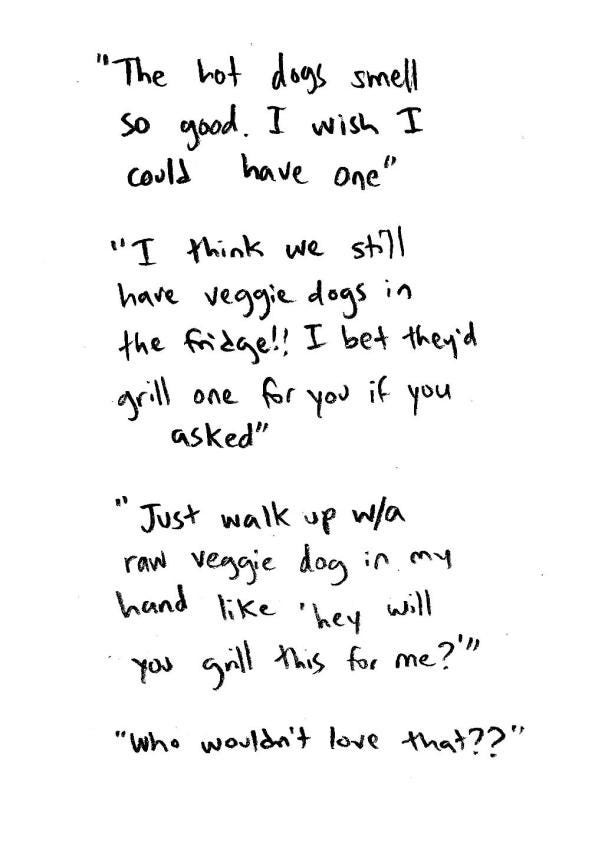 "The hot dogs smell
so good. I wish I
could have one"
"I think we still
have veggie dogs in
the fridge!! I bet they'd
grill one for you if you
asked"
"Just walk up w/a
raw veggie dog in my
hand like 'hey will
you grill this for me?'"
"Who wouldn't love that??"